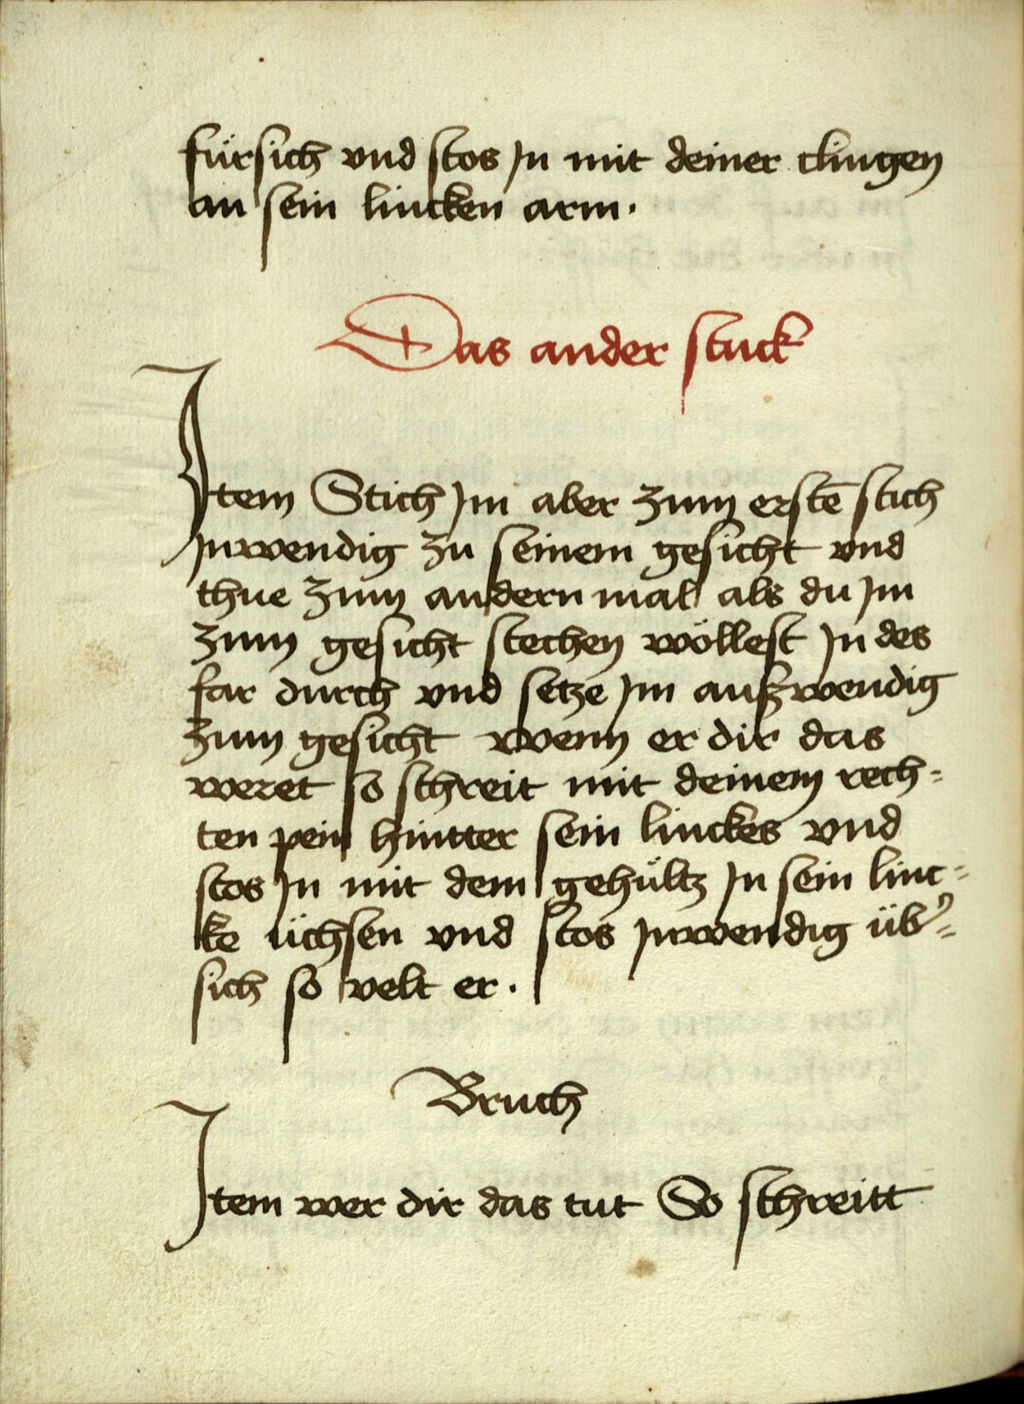 fürsich vnd stos Jn mit deiner clingen
an sein lincken arm.
Das ander stuck
Item Stich Jm aber zum erstē stich
Jnwendig zu seinem gesicht vnd
thue zum andern mal als du Jm
zum gesicht stechen wöllest Jn des
far durch vnd setze Jm außwendig
zum gesicht wenn er dir das
weret so schreit mit deinem rech=
ten pein hintter sein linckes vnd
stos Jn mit dem gehültz Jn sein linc=
ke üchsen vnd stos Jnwendig üb'=
sich so velt er.
Bruch
Item wer dir das tut So schreitt